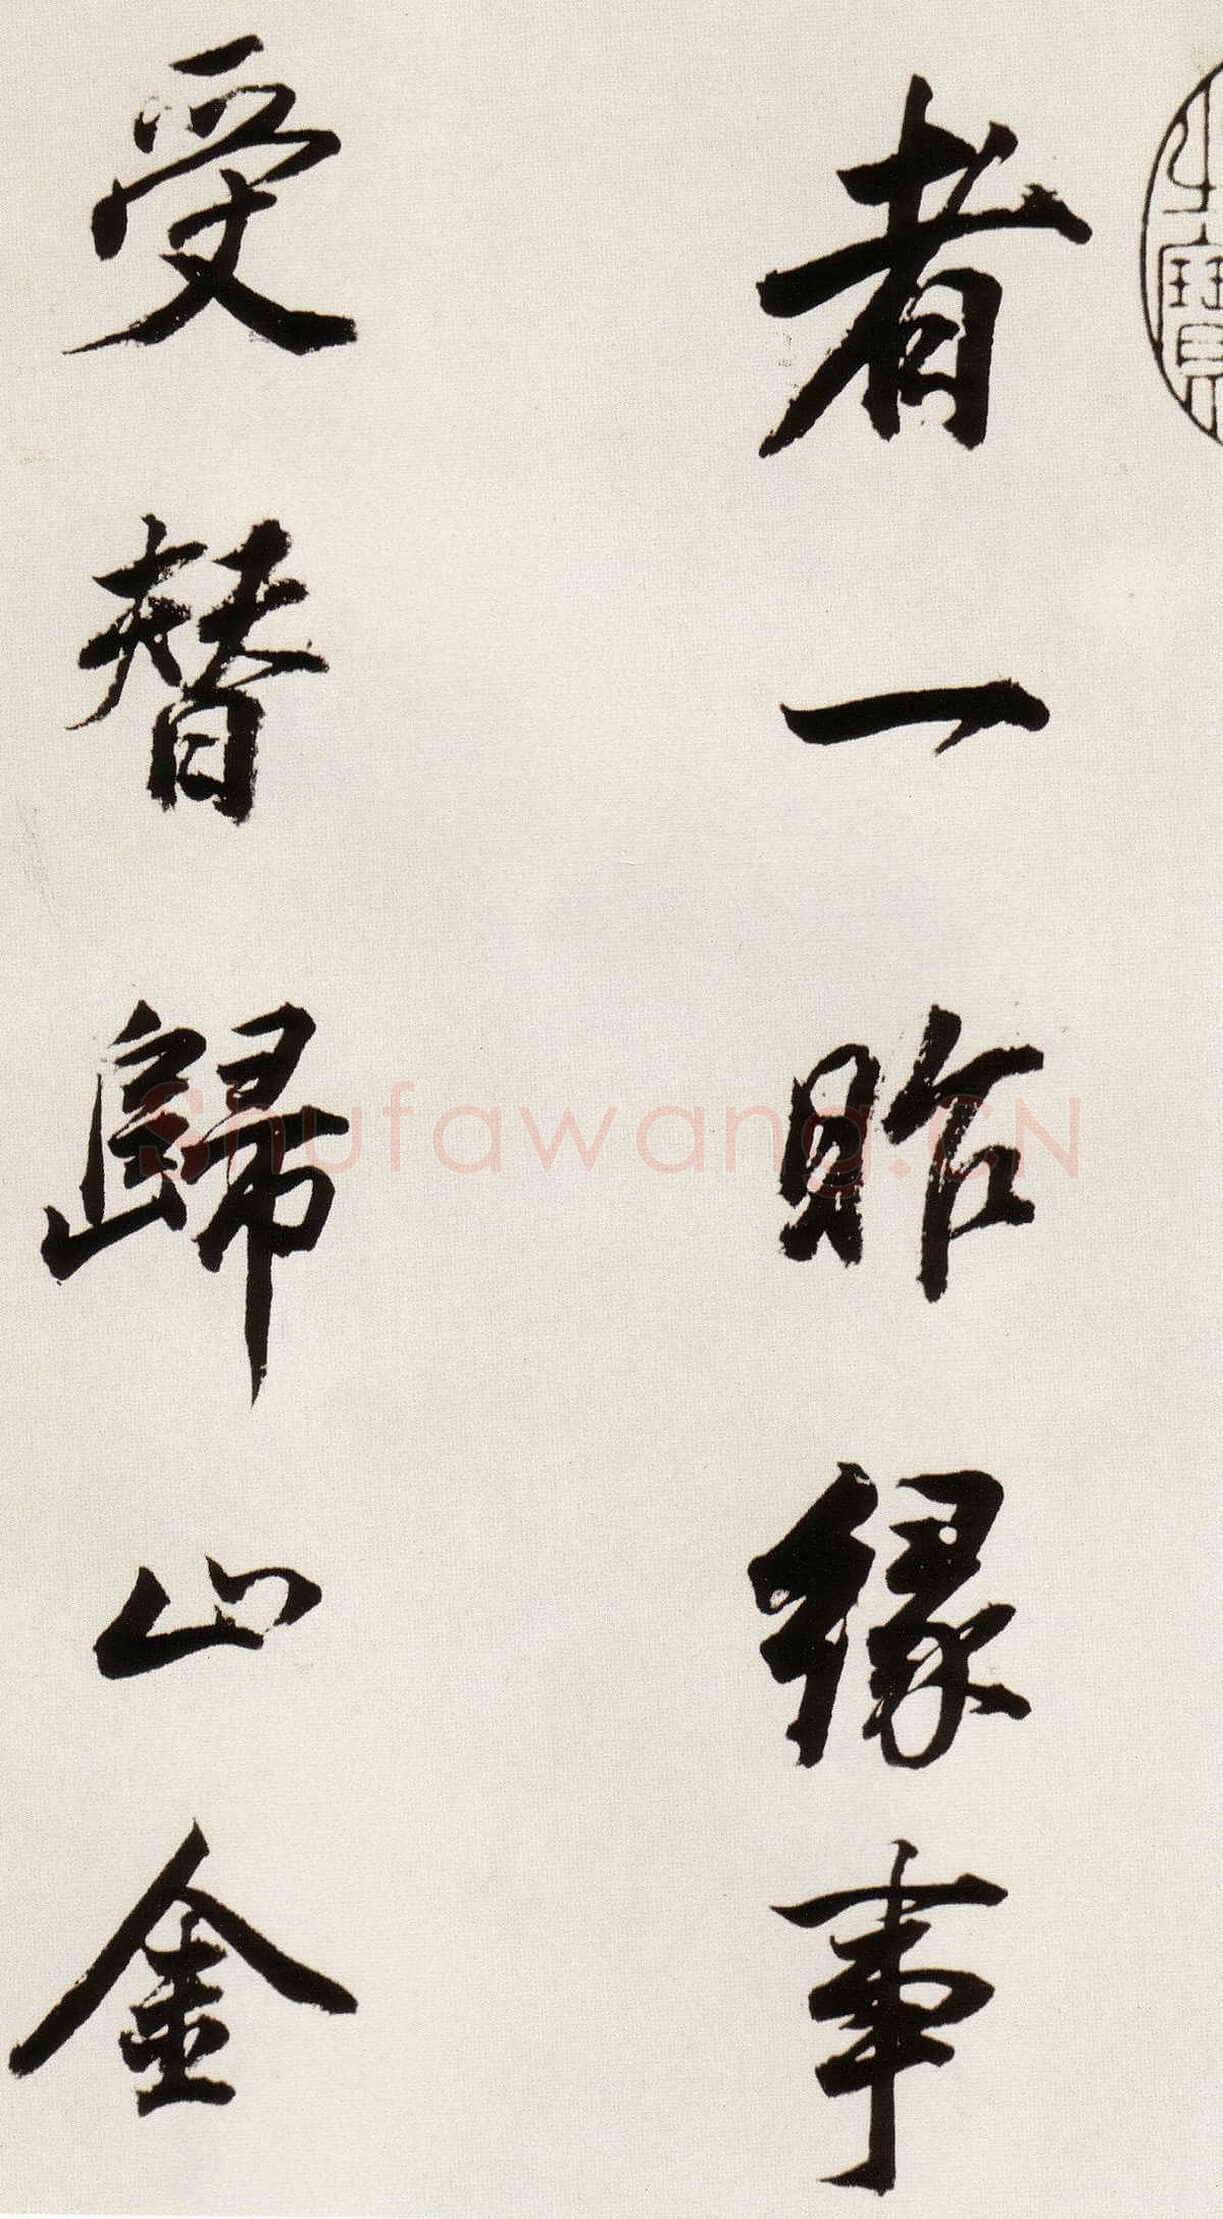 者一昨緣事
受替歸山金
之寶
Shufawang.CN